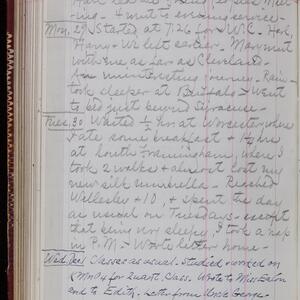 ing - & went to evening service -
Mon. 29 Started at 7:26 for W.C.
Harry - We left earlier. Mary went
with me as far as Cleveland -
An uninteresting journey - Rain -
took sleeper at Buffalo - went
to bed just beyond Syracuse -
Tues. 30 Waited ½ hr at Worcester, where
I ate some breakfast &
at South Framingham, where I
took 2 walks & almost lost my
new silk umbrella - Reached
Wellesley + 10, & spent the day
as usual on Tuesdays - except
that being very sleepy, I took a nap
in P.M. - Wrote letter home -
Wed. Dec 1 Classes as usual. Studied, worked on
for Quant. Class. Wrote to Miss Eaton
and to Edith. Letter from Uncle George -